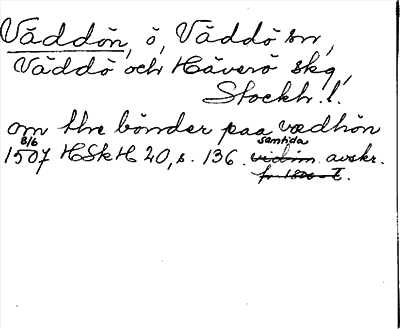 Väddön, ö, Väddö sn,
Väddö och Häverö skg,
Stockh. l.
om thre bönder paa vædhön
8/6 1507 HSkH 20, s. 136. samtida avskr.